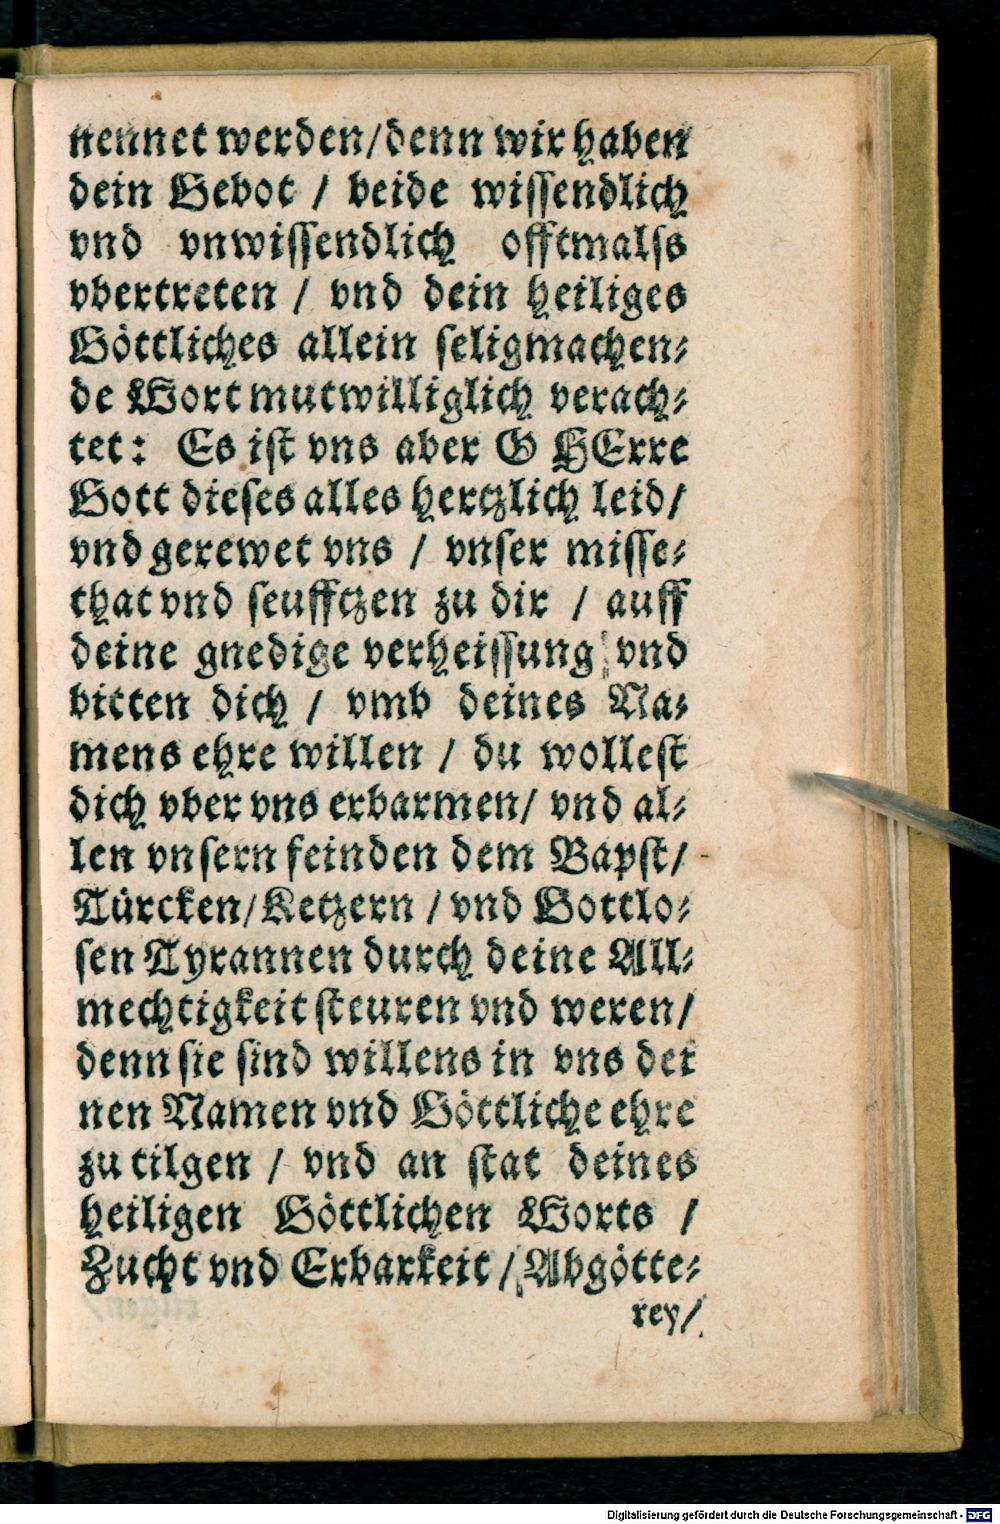 nennet werden/denn wir haben
dein Gebot / beide wissendlich
vnd vnwissendlich offtmalss
vbertreten / vnd dein heiliges
Göttliches allein seligmachen-
de Wort mutwilliglich verach-
tet: Es ist vns aber O HErre
Gott dieses alles hertzlich leid/
vnd gerewet vns / vnser misse-
that vnd seufftzen zu dir / auff
deine gnedige verheissung/ vnd
bitten dich / vmb deines Na-
mens ehre willen / du wollest
dich vber vns erbarmen/ vnd al-
len vnsern feinden dem Bapst/
Türcken/Ketzern / vnd Gottlo-
sen Tyrannen durch deine All-
mechtigkeit steuren vnd weren/
denn sie sind willens in vns dei
nen Namen vnd Göttliche ehre
zu tilgen / vnd an stat deines
heiligen Göttlichen Worts /
Zucht vnd Erbarkeit / Abgötte-
rey/
Digitalisierung gefördert durch die Deutsche Forschungsgemeinschaft - DFG